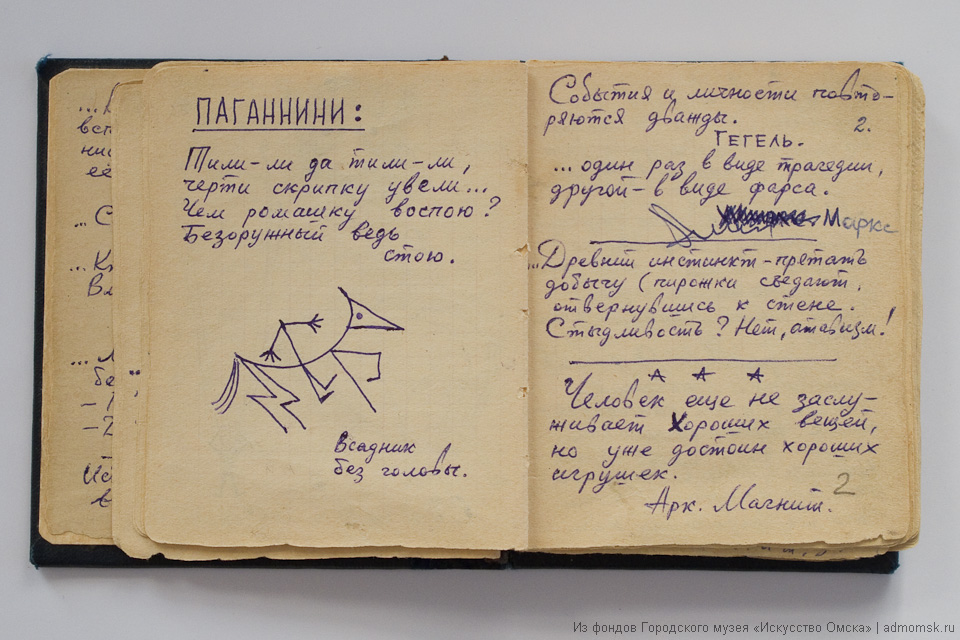 ПАГАННИНИ:
Тили-ли да тили-ли,
черти скрипку увели...
Чем ромашку воспою?
Безоружный ведь
стою.
Всадник
без головы.
События и личности повто-
ряются дважды.
2.
ГЕГЕЛЬ.
... один раз в виде трагедии,
другой - в виде фарса.
Маркс
... Древний инстинкт - прятать
добычу (пирожки съедают,
отвернувшись к стене.
Стыдливость? Нет, атавизм!
Человек еще не заслу-
живает хороших вещей,
но уже достоин хороших
игрушек.
Арк. Магнит.
2
Из фондов Городского музея «Искусство Омска» | admomsk.ru